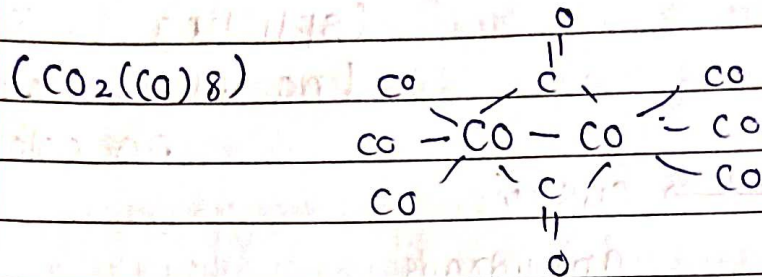 O
||
(CO2(CO)8) CO C CO
CO — CO — CO — CO
CO C CO
||
O